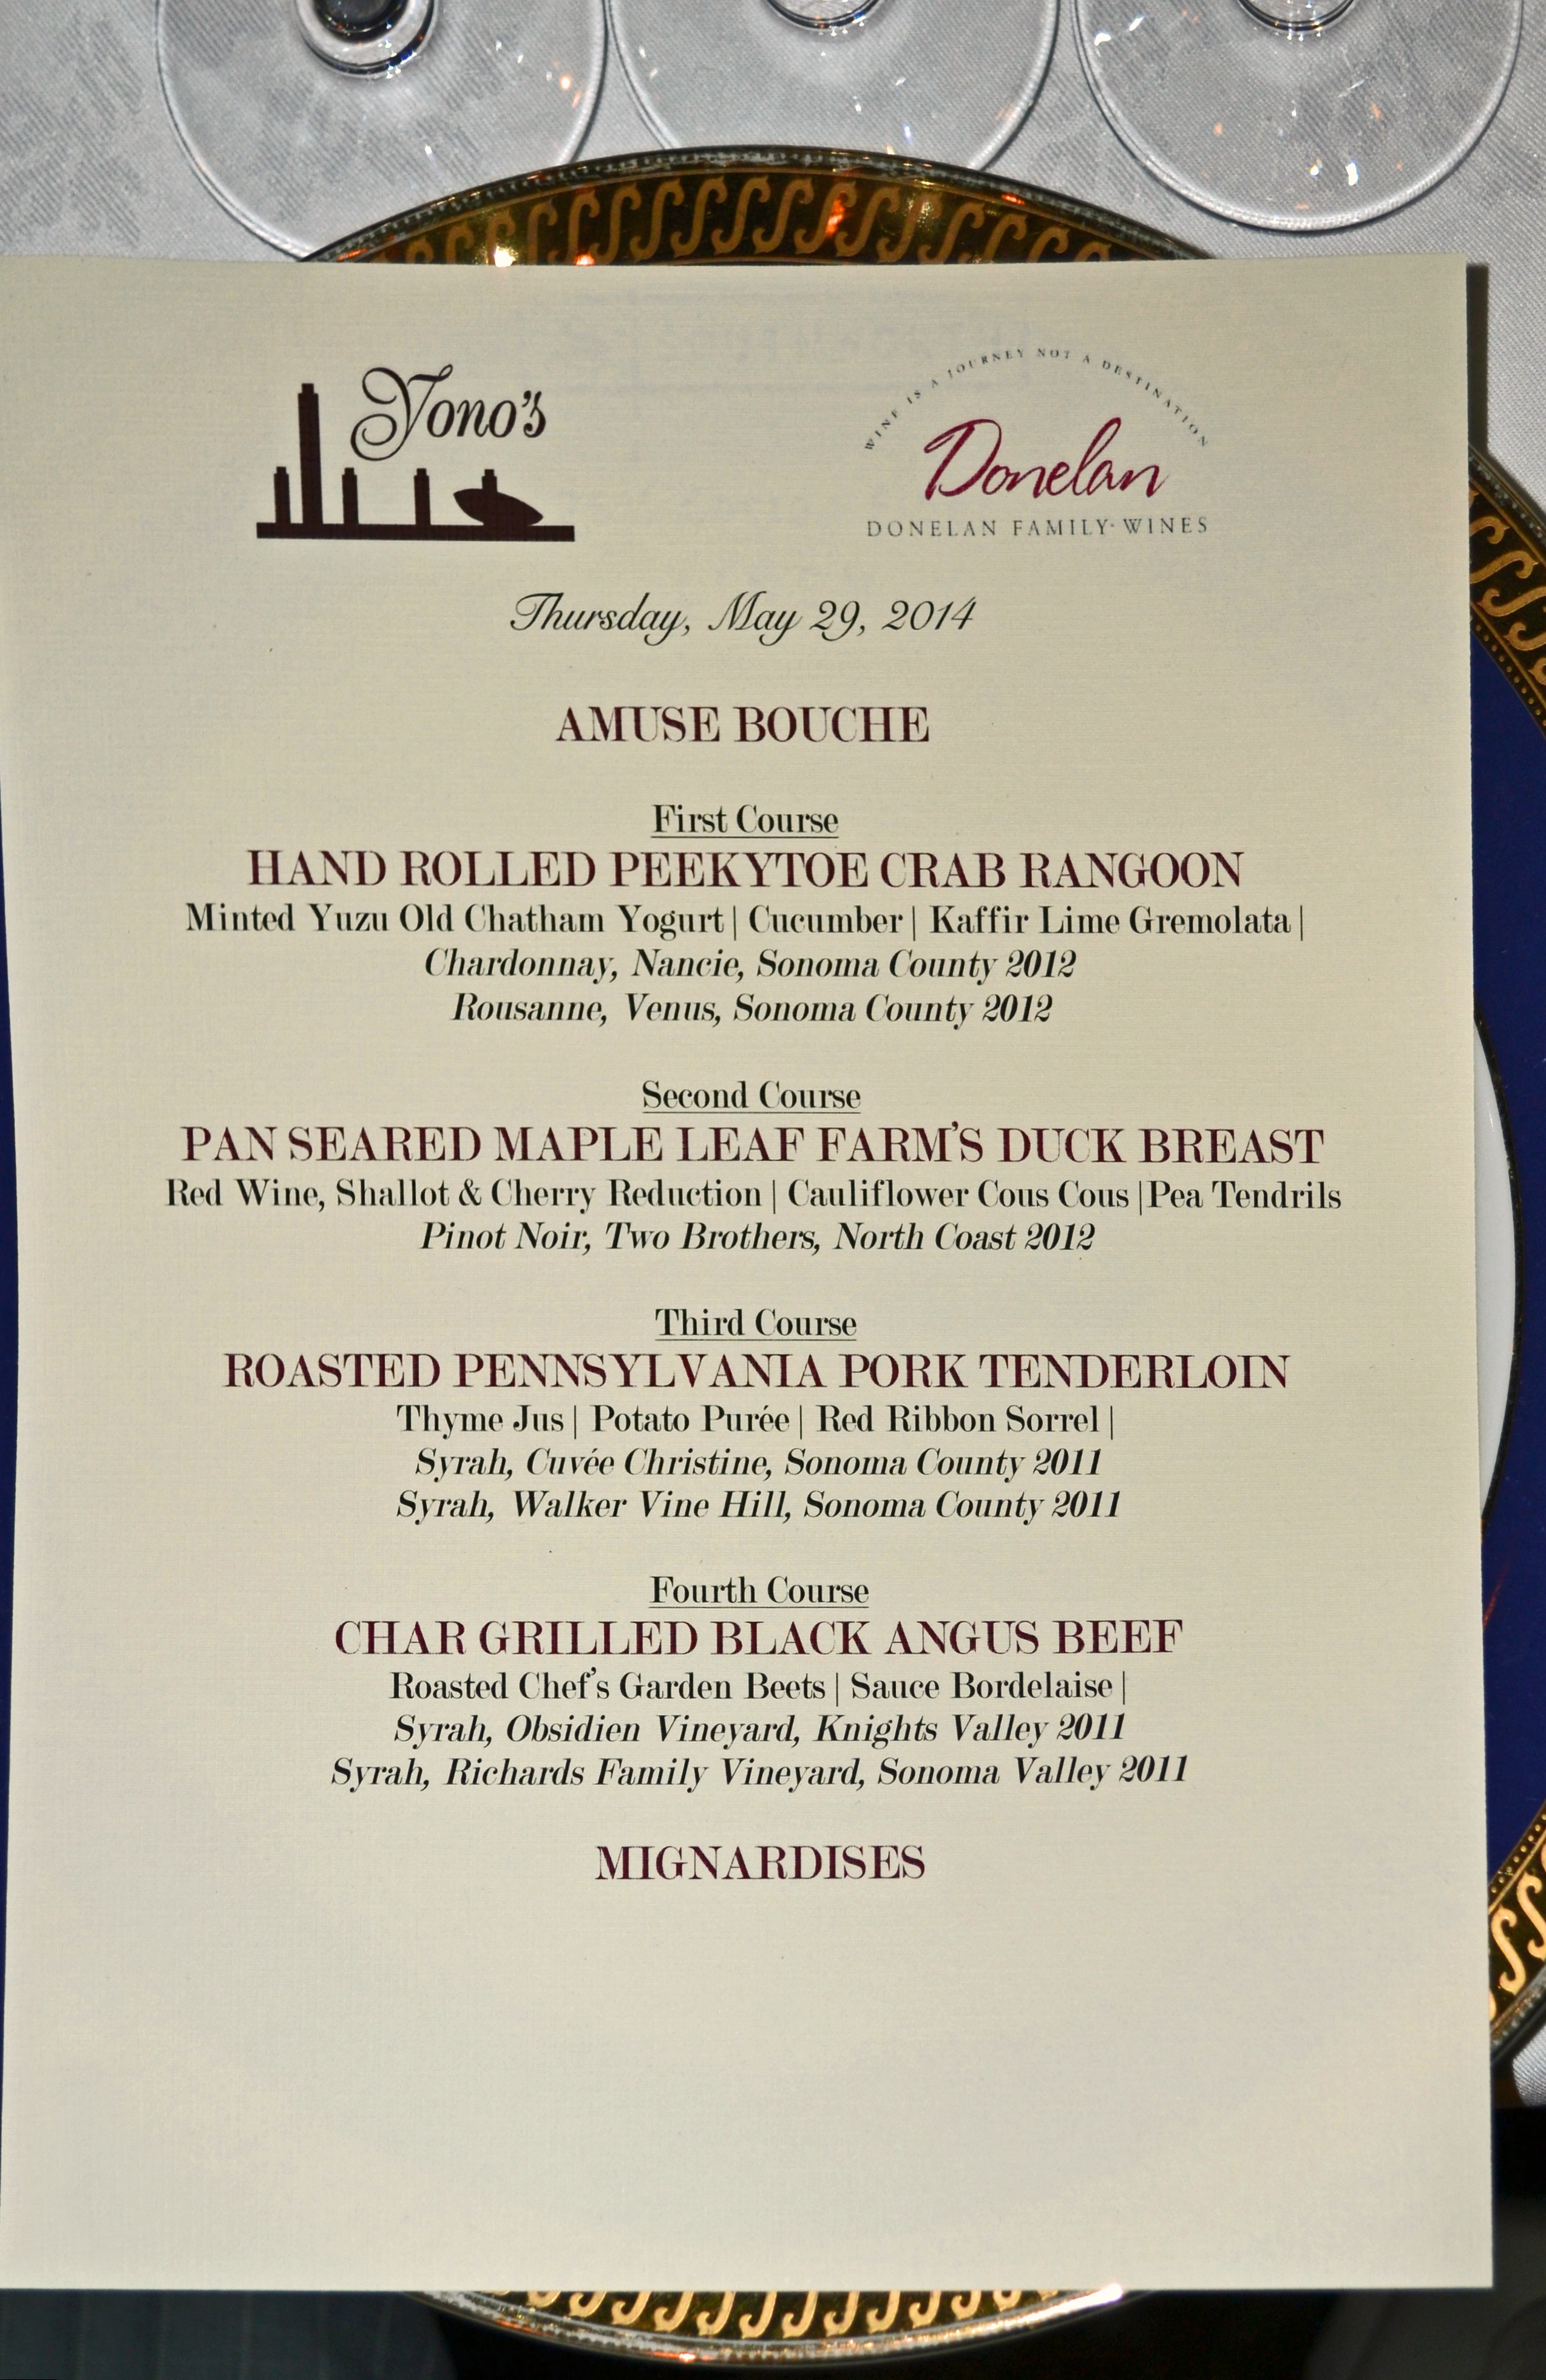 Yono's
WINE IS A JOURNEY NOT A DESTINATION
Donelan
DONELAN FAMILY·WINES
Thursday, May 29, 2014
AMUSE BOUCHE
First Course
HAND ROLLED PEEKYTOE CRAB RANGOON
Minted Yuzu Old Chatham Yogurt| Cucumber| Kaffir Lime Gremolata|
Chardonnay, Nancie, Sonoma County 2012
Rousanne, Venus, Sonoma County 2012
Second Course
PAN SEARED MAPLE LEAF FARM'S DUCK BREAST
Red Wine, Shallot & Cherry Reduction | Cauliflower Cous Cous |Pea Tendrils
Pinot Noir, Two Brothers, North Coast 2012
Third Course
ROASTED PENNSYLVANIA PORK TENDERLOIN
Thyme Jus| Potato Purée| Red Ribbon Sorrel|
Syrah, Cuvée Christine, Sonoma County 2011
Syrah, Walker Vine Hill, Sonoma County 2011
Fourth Course
CHAR GRILLED BLACK ANGUS BEEF
Roasted Chef's Garden Beets| Sauce Bordelaise|
Syrah, Obsidien Vineyard, Knights Valley 2011
Syrah, Richards Family Vineyard, Sonoma Valley 2011
MIGNARDISES